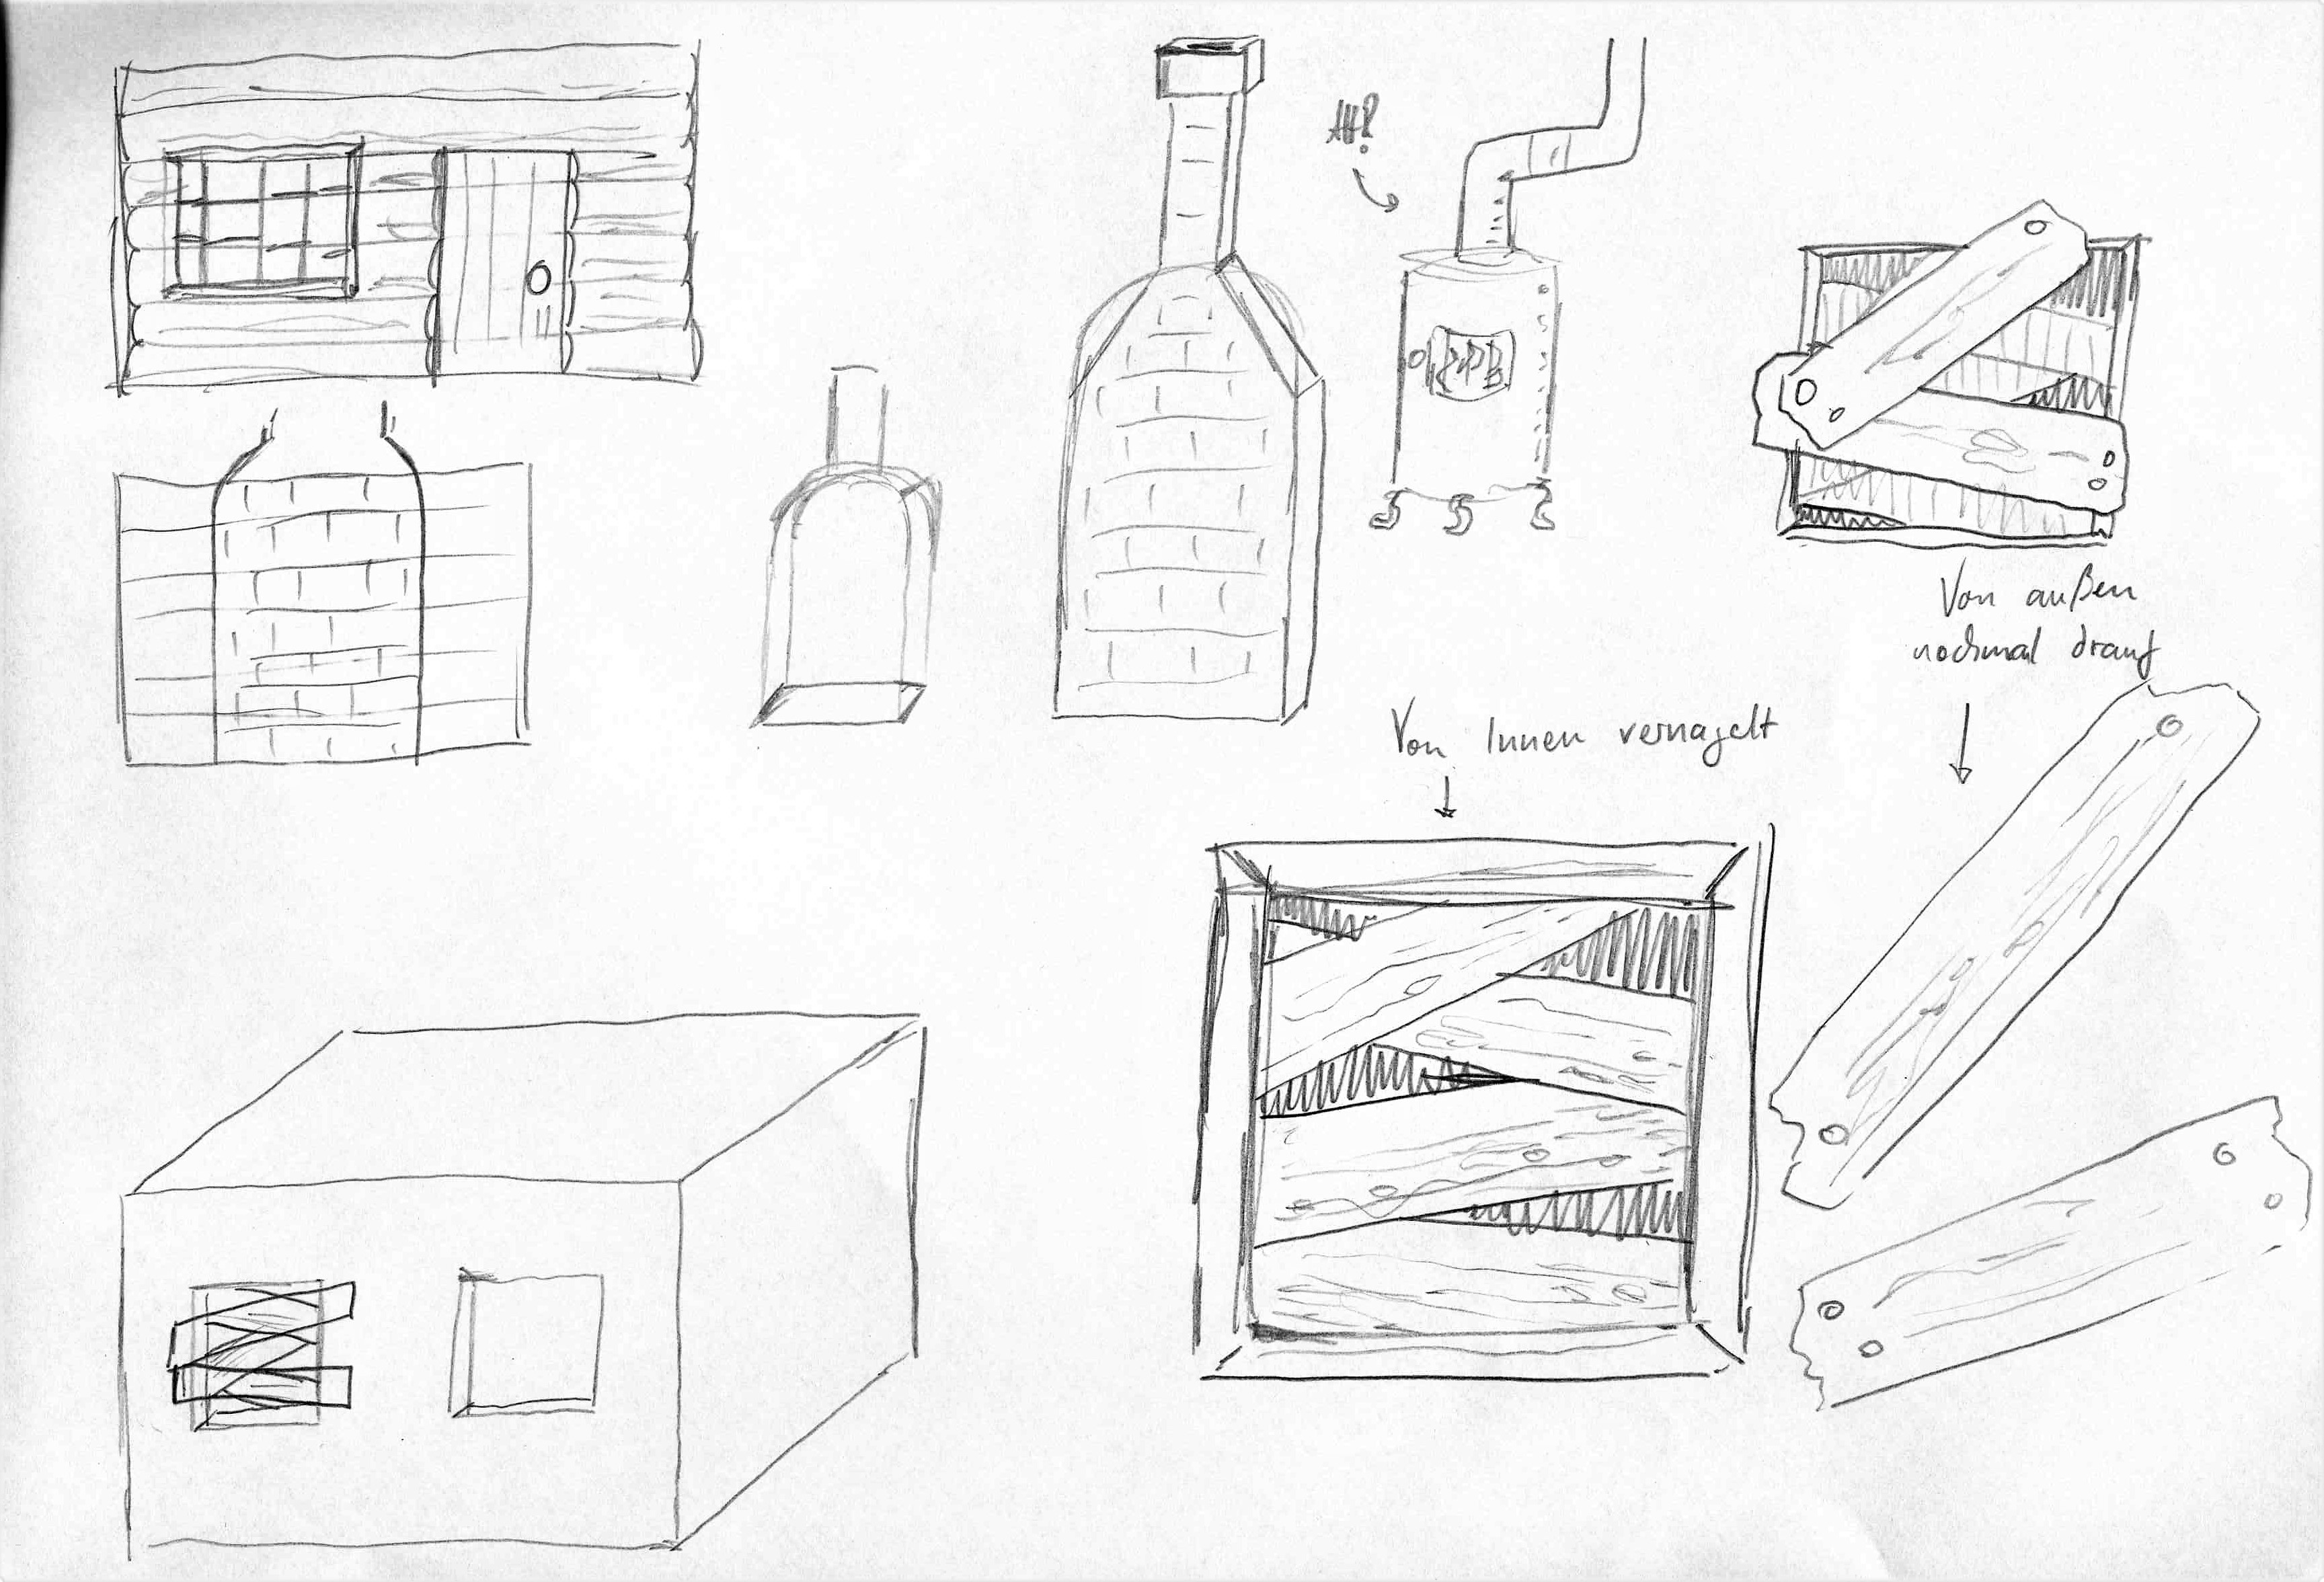 Von außen
nochmal drauf
Von Innen vernagelt